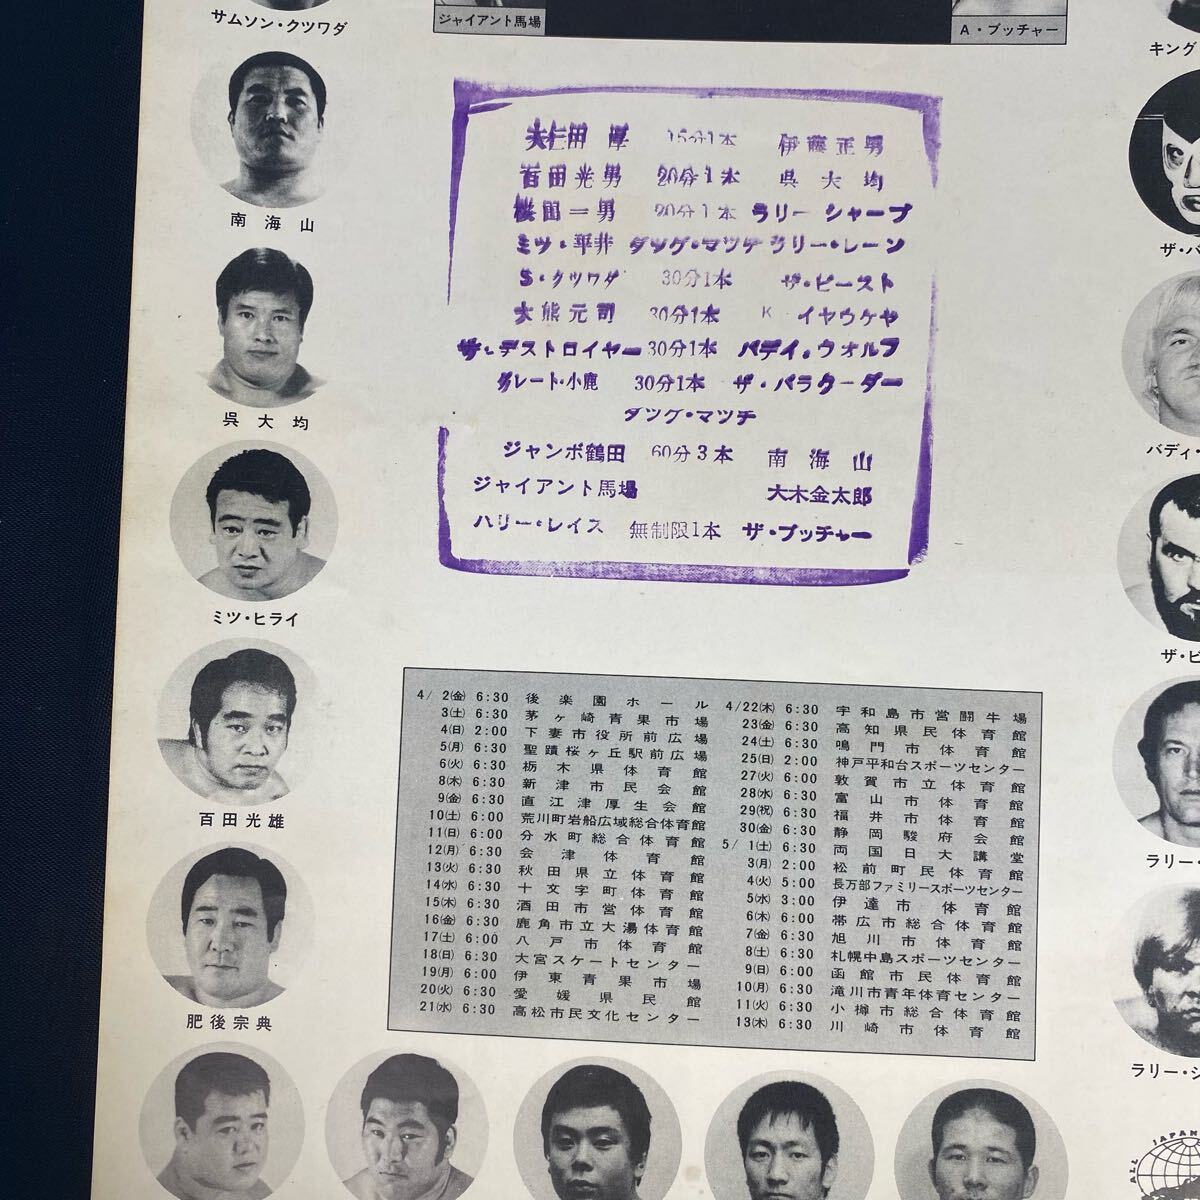 サムソン・クツワダ
ジャイアント馬場
A・ブッチャー
キング
南海山
呉大均
ミツ・ヒライ
百田光雄
肥後宗典
大仁田 厚 15分1本 伊藤正男
百田光男 20分1本 呉大均
桜田一男 20分1本 ラリー シャープ
ミツ・平井 タツグ・マツチ ラリー・レーン
S・クツワダ 30分1本 ザ・ビースト
大熊元司 30分1本 K イヤウケヤ
ザ・デストロイヤー 30分1本 バデイ・ウオルフ
グレート・小鹿 30分1本 ザ・バラクーダー
タツグ・マツチ
ジャンボ鶴田 60分3本 南海山
ジャイアント馬場 大木金太郎
ハリー・レイス 無制限1本 ザ・ブッチャー
4/2(金) 6:30 後楽園ホール
3(土) 6:30 茅ヶ崎青果市場
4(日) 2:00 下妻市役所前広場
5(月) 6:30 聖蹟桜ヶ丘駅前広場
6(火) 6:30 栃木県体育館
8(木) 6:30 新津市民会館
9(金) 6:30 直江津厚生会館
10(土) 6:00 荒川町岩船広域総合体育館
11(日) 6:00 分水町総合体育館
12(月) 6:30 会津体育館
13(火) 6:30 秋田県立体育館
14(水) 6:30 十文字町体育館
15(木) 6:30 酒田市営体育館
16(金) 6:30 鹿角市立大湯体育館
17(土) 6:00 八戸市体育館
18(日) 6:30 大宮スケートセンター
19(月) 6:00 伊東青果市場
20(火) 6:30 愛媛県民館
21(水) 6:30 高松市民文化センター
4/22(木) 6:30 宇和島市営闘牛場
23(金) 6:30 高知県民体育館
24(土) 6:30 鳴門市体育館
25(日) 2:00 神戸平和台スポーツセンター
27(火) 6:00 敦賀市立体育館
28(水) 6:30 富山市体育館
29(祝) 6:30 福井市体育館
30(金) 6:30 静岡駿府会館
5/1(土) 6:30 両国日大講堂
3(月) 2:00 松前町民体育館
4(火) 5:00 長万部ファミリースポーツセンター
5(水) 3:00 伊達市体育館
6(木) 6:00 帯広市総合体育館
7(金) 6:30 旭川市体育館
8(土) 6:30 札幌中島スポーツセンター
9(日) 6:00 函館市民体育館
10(月) 6:30 滝川市青年体育センター
11(火) 6:30 小樽市総合体育館
13(木) 6:30 川崎市体育館
ザ・バ
バディ・
ザ・ビ
ラリー・
ラリー・シ
ALL JAPAN